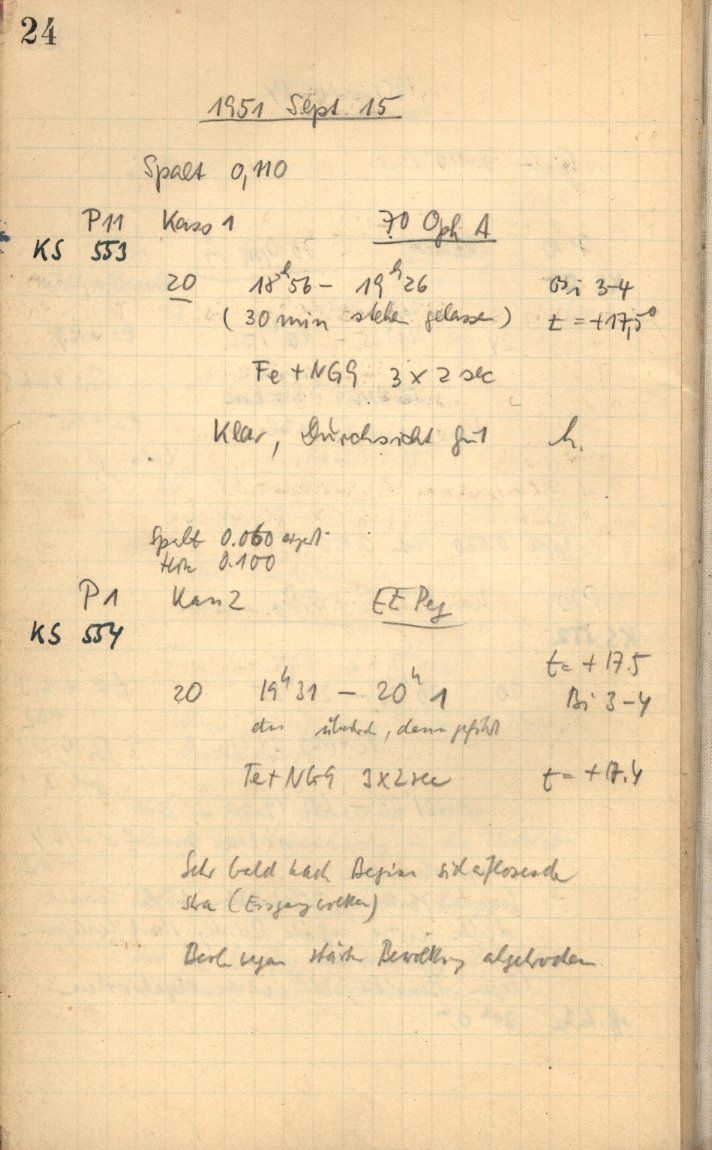 24
1951 Sept 15
Spalt 0,110
P11 Kass 1 70 Oph A
KS 553
20 18h56 – 19h26 Bi 3-4
(30 min stehen gelassen) t = +17,5°
Fe + NGG 3 x 2 sec
Klar, Durchsicht gut h.
Spalt 0.060
0.100
P1 Kass 2 EE Peg
KS 554
t = +17.5
20 19h31 – 20h1 Bi 3-4
dann
Fe + NGG 3x2 sec t = +17.4
Sehr bald nach Beginn
Bewölkung abgebrochen